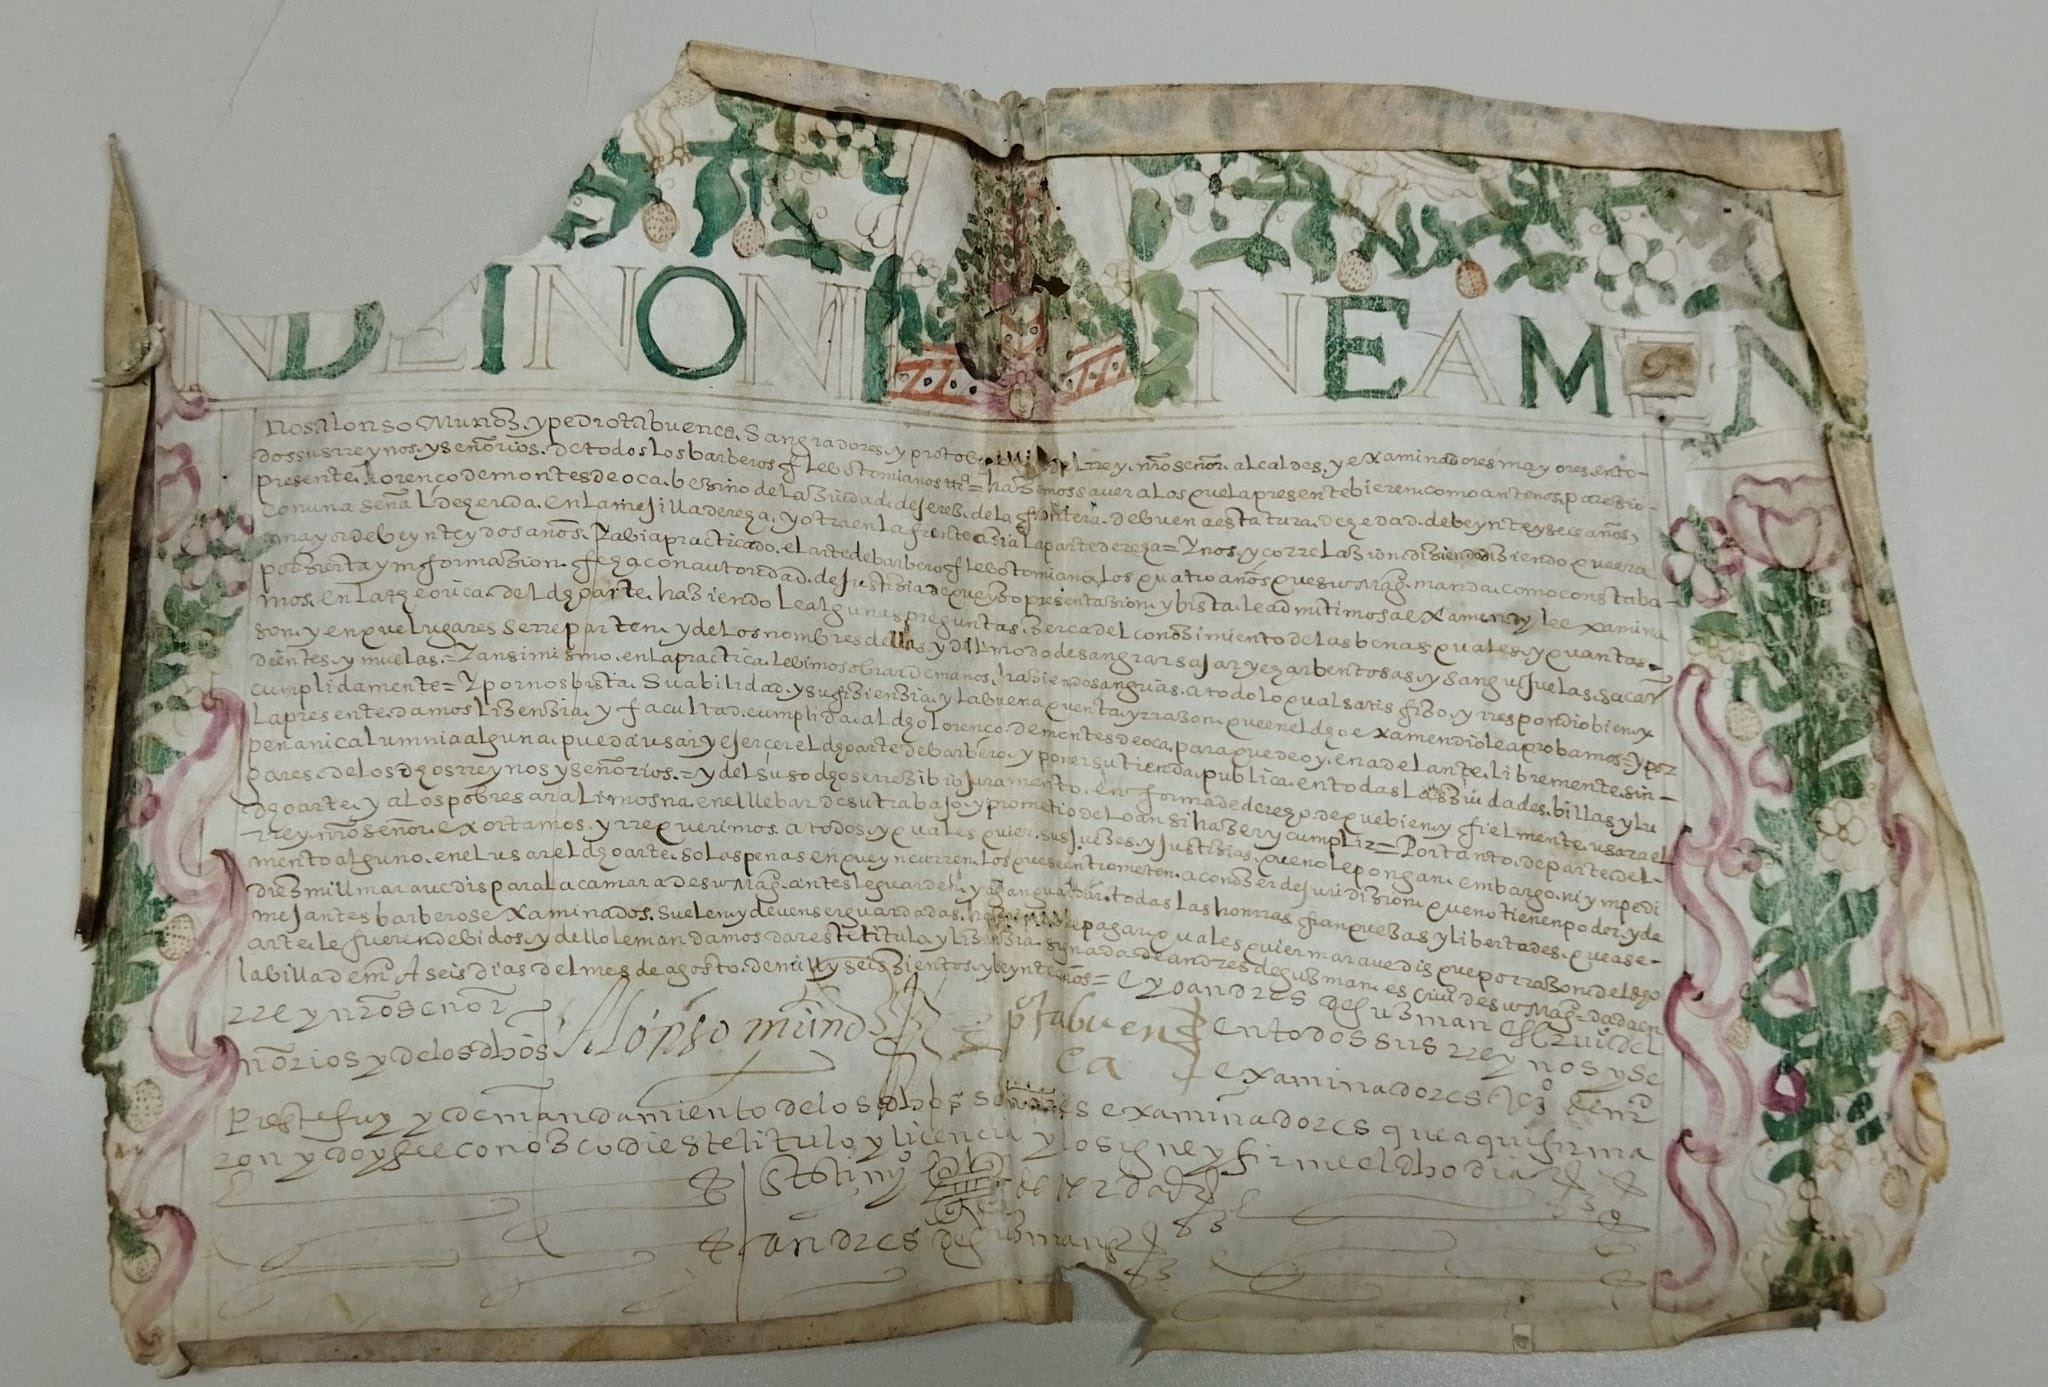 IN DEI NOMINE AMEN
Nos alonso Muñoz. y pedro tabuenca. Sangradores. y protobarberos del rrey. nrō señor. alcaldes. y examinadores mayores. en to-
dos sus rreynos. y señorios. de todos los barberos flebotomianos = hazemos saver a los que la presente bieren. como ante nos. paresio.
presente. Lorenço de montes de oca. bezino de la ziudad. de jerez. de la frontera. de buena estatura. de hedad. de beynte y seis años,
con una señal de herida. en la mejilla derecha. y otra en la frente azia la parte derecha = y nos. y zo rrelazion. diziendo que era
mayor de beynte y dos años. Y abia practicado. el arte de barbero flebotomiano, los quatro años que su Magd. manda. como constaba.
por zierta ynformazion. fecha con autoridad. de justizia de que yzo presentazion. y bista. le admitimos a examen. y le examina
mos. en la theorica. del dho arte. haziendole algunas preguntas. zerca del conozimiento de las benas. quales. y quantas.
son. y en que lugares se rreparten. y de los nombres dellas y del modo de sangrar sajar y echar bentosas. y sanguijuelas. sacar
dientes. y muelas. = Y ansi mismo. en la practica. le bimos obrar de manos. haziendo sangrias. a todo lo qual satisfizo. y rrespondio bien. y
cumplidamente = Y por nos bista. Su abilidad. y sufizienzia. y la buena quenta. y rrazon. que en el dho examen dio le aprobamos = y por
la presente. damos lizenzia. y facultad. cumplida. al dho lorenço. de montes de oca. para que de oy. en adelante. libremente. sin
pena ni calumnia alguna. pueda usar y ejerçer el dho arte de barbero. y poner su tienda. publica. en todas las ziudades. billas y lu
gares. de los dhos rreynos y señorios. = y del suso dho se rrezibio juramento. en forma de derecho. de que bien y fielmente. usara el
dho arte. y a los pobres ara limosna. en el llebar de su trabajo. y prometio de lo ansi hazer y cumplir = Por tanto. de parte. del
rrey. nrō señor. exortamos. y rrequerimos. a todos. y quales quier. sus juezes. y justizias. que no le pongan. embargo. ni ympedi
mento alguno. en el usar el dho arte. so las penas en que yncurren. los que se entrometen. a conozer de juridizion. que no tienen poder. y de
diez mill maravedis para la camara de su Magd. antes le guarden. y agan guardar. todas las honrras franquezas y libertades. que a se-
mejantes barberos examinados. suelen y deven ser guardadas. haziendole pagar. quales quier maravedis que por rrazon. del dho
arte. le fueren debidos. y dello le mandamos dar este titulo. y lizenzia. signada. de andres de guzman. es crivº de su Magd = dada en
la billa de md. A seis dias del mes de agosto. de mill y seiszientos. y beynte años = E yo andres de guzman escrivº del
rrey nrō señor Alonso muñoz pº tabuen en todos sus rreynos y se
ñorios y de los dhos ca examinadores
presste fuy y de mandamiento de los dhos señores examinadores que aqui firma
ron y doy fee conozco di este titulo y licencia y lo signe y firme el dho dia
En testimº de verdad
andres de guzman